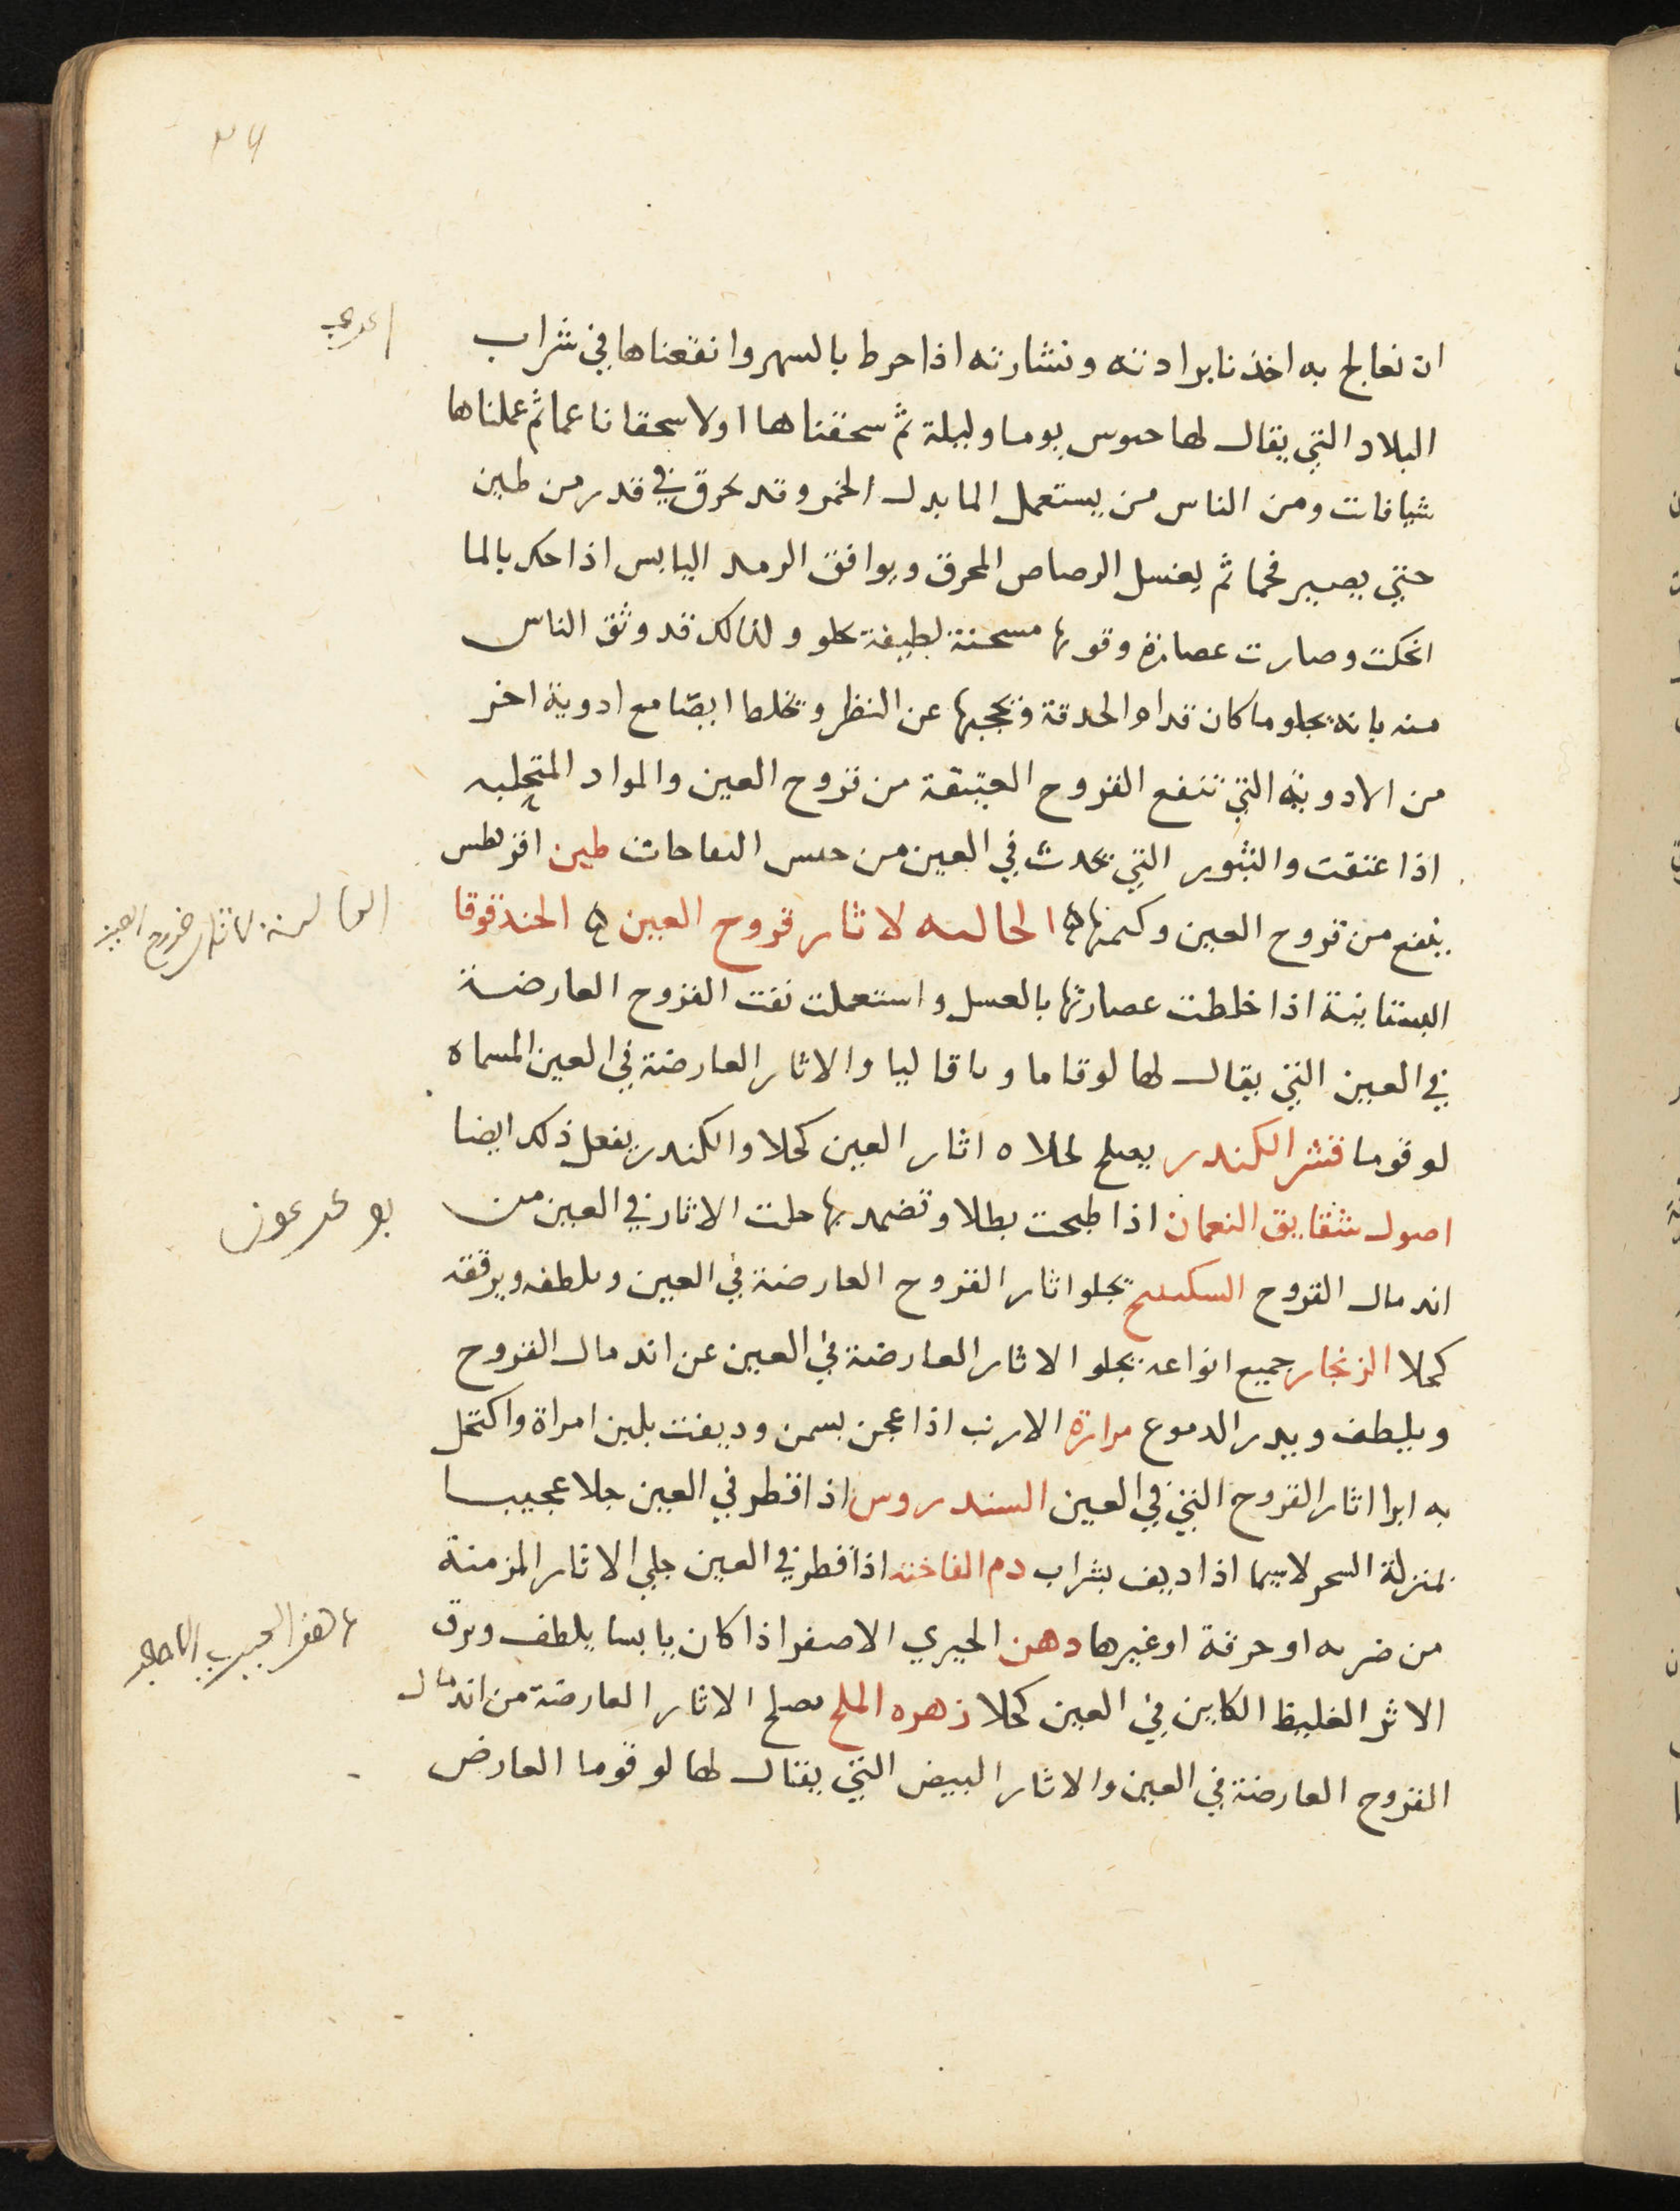 ان نعالج به اخذنا برادته ونشارته اذا حرط بالسهر وانقعناها في شراب
البلاد التي يقال لها حىوس يوما وليلة ثم سحقناها اولا سحقا ناعما ثم عملناها
شيافات ومن الناس من يستعمل الما بدل الخمر وقد يحرق في قدر من طين
حتي يصير فحما ثم يغسل الرصاص المحرق ويوافق الرمد اليابس اذا حك بالما
انحكت وصارت عصارة وقوتها مسخنة لطيفة تحلو ولذلك قد وثق الناس
منه بانه يجلو ما كان قدام الحدقة ويحجبها عن النظر ويخلط ايضا مع ادوية اخر
من الادوية التي تنفع القروح العتيقة من قروح العين والمواد المتحلبه
اذا عتقت والبثور التي تحدث في العين من حىس النفاحات طين اقريطس
ينفع من قروح العين وكمنتها ه الحالىه لاثار قروح العين ه الحندقوقا
البستانية اذا خلطت عصارتها بالعسل واستعملت نقت القروح العارضة
في العين التي يقال لها لوقاما وىاقاليا والاثار العارضة في العين المسماه
لوقوما قشر الكندر يصلح لجلاه اثار العين كحلا والكندر يفعل ذلك ايضا
اصول شقايق النعمان اذا طبخت بطلا وتضمد بها جلت الاثار في العين من
اندمال القروح السكبينج يجلو اثار القروح العارضة في العين ويلطفه ويرققه
كحلا الزنجار جميع انواعه يجلو الاثار العارضة في العين عن اندمال القروح
ويلطف ويدر الدموع مرارة الارنب اذا عجن بسمن وديفت بلبن امراة واكتحل
به ابرا اثار القروح التي في العين السندروس اذا قطر في العين جلا عجيبا
بمنزلة السحر لاسيما اذا ديف بشراب دم الفاخته اذا قطر في العين جلي الاثار المزمنة
من ضربه او حرقة او غيرها دهن الخيري الاصفر اذا كان يابسا يلطف ويرق
الاثر الغليظ الكاين في العين كحلا زهره الملح ىصلح الاثار العارضة من اندمال
القروح العارضة في العين والاثار البيض التي يقال لها لوقوما العارض